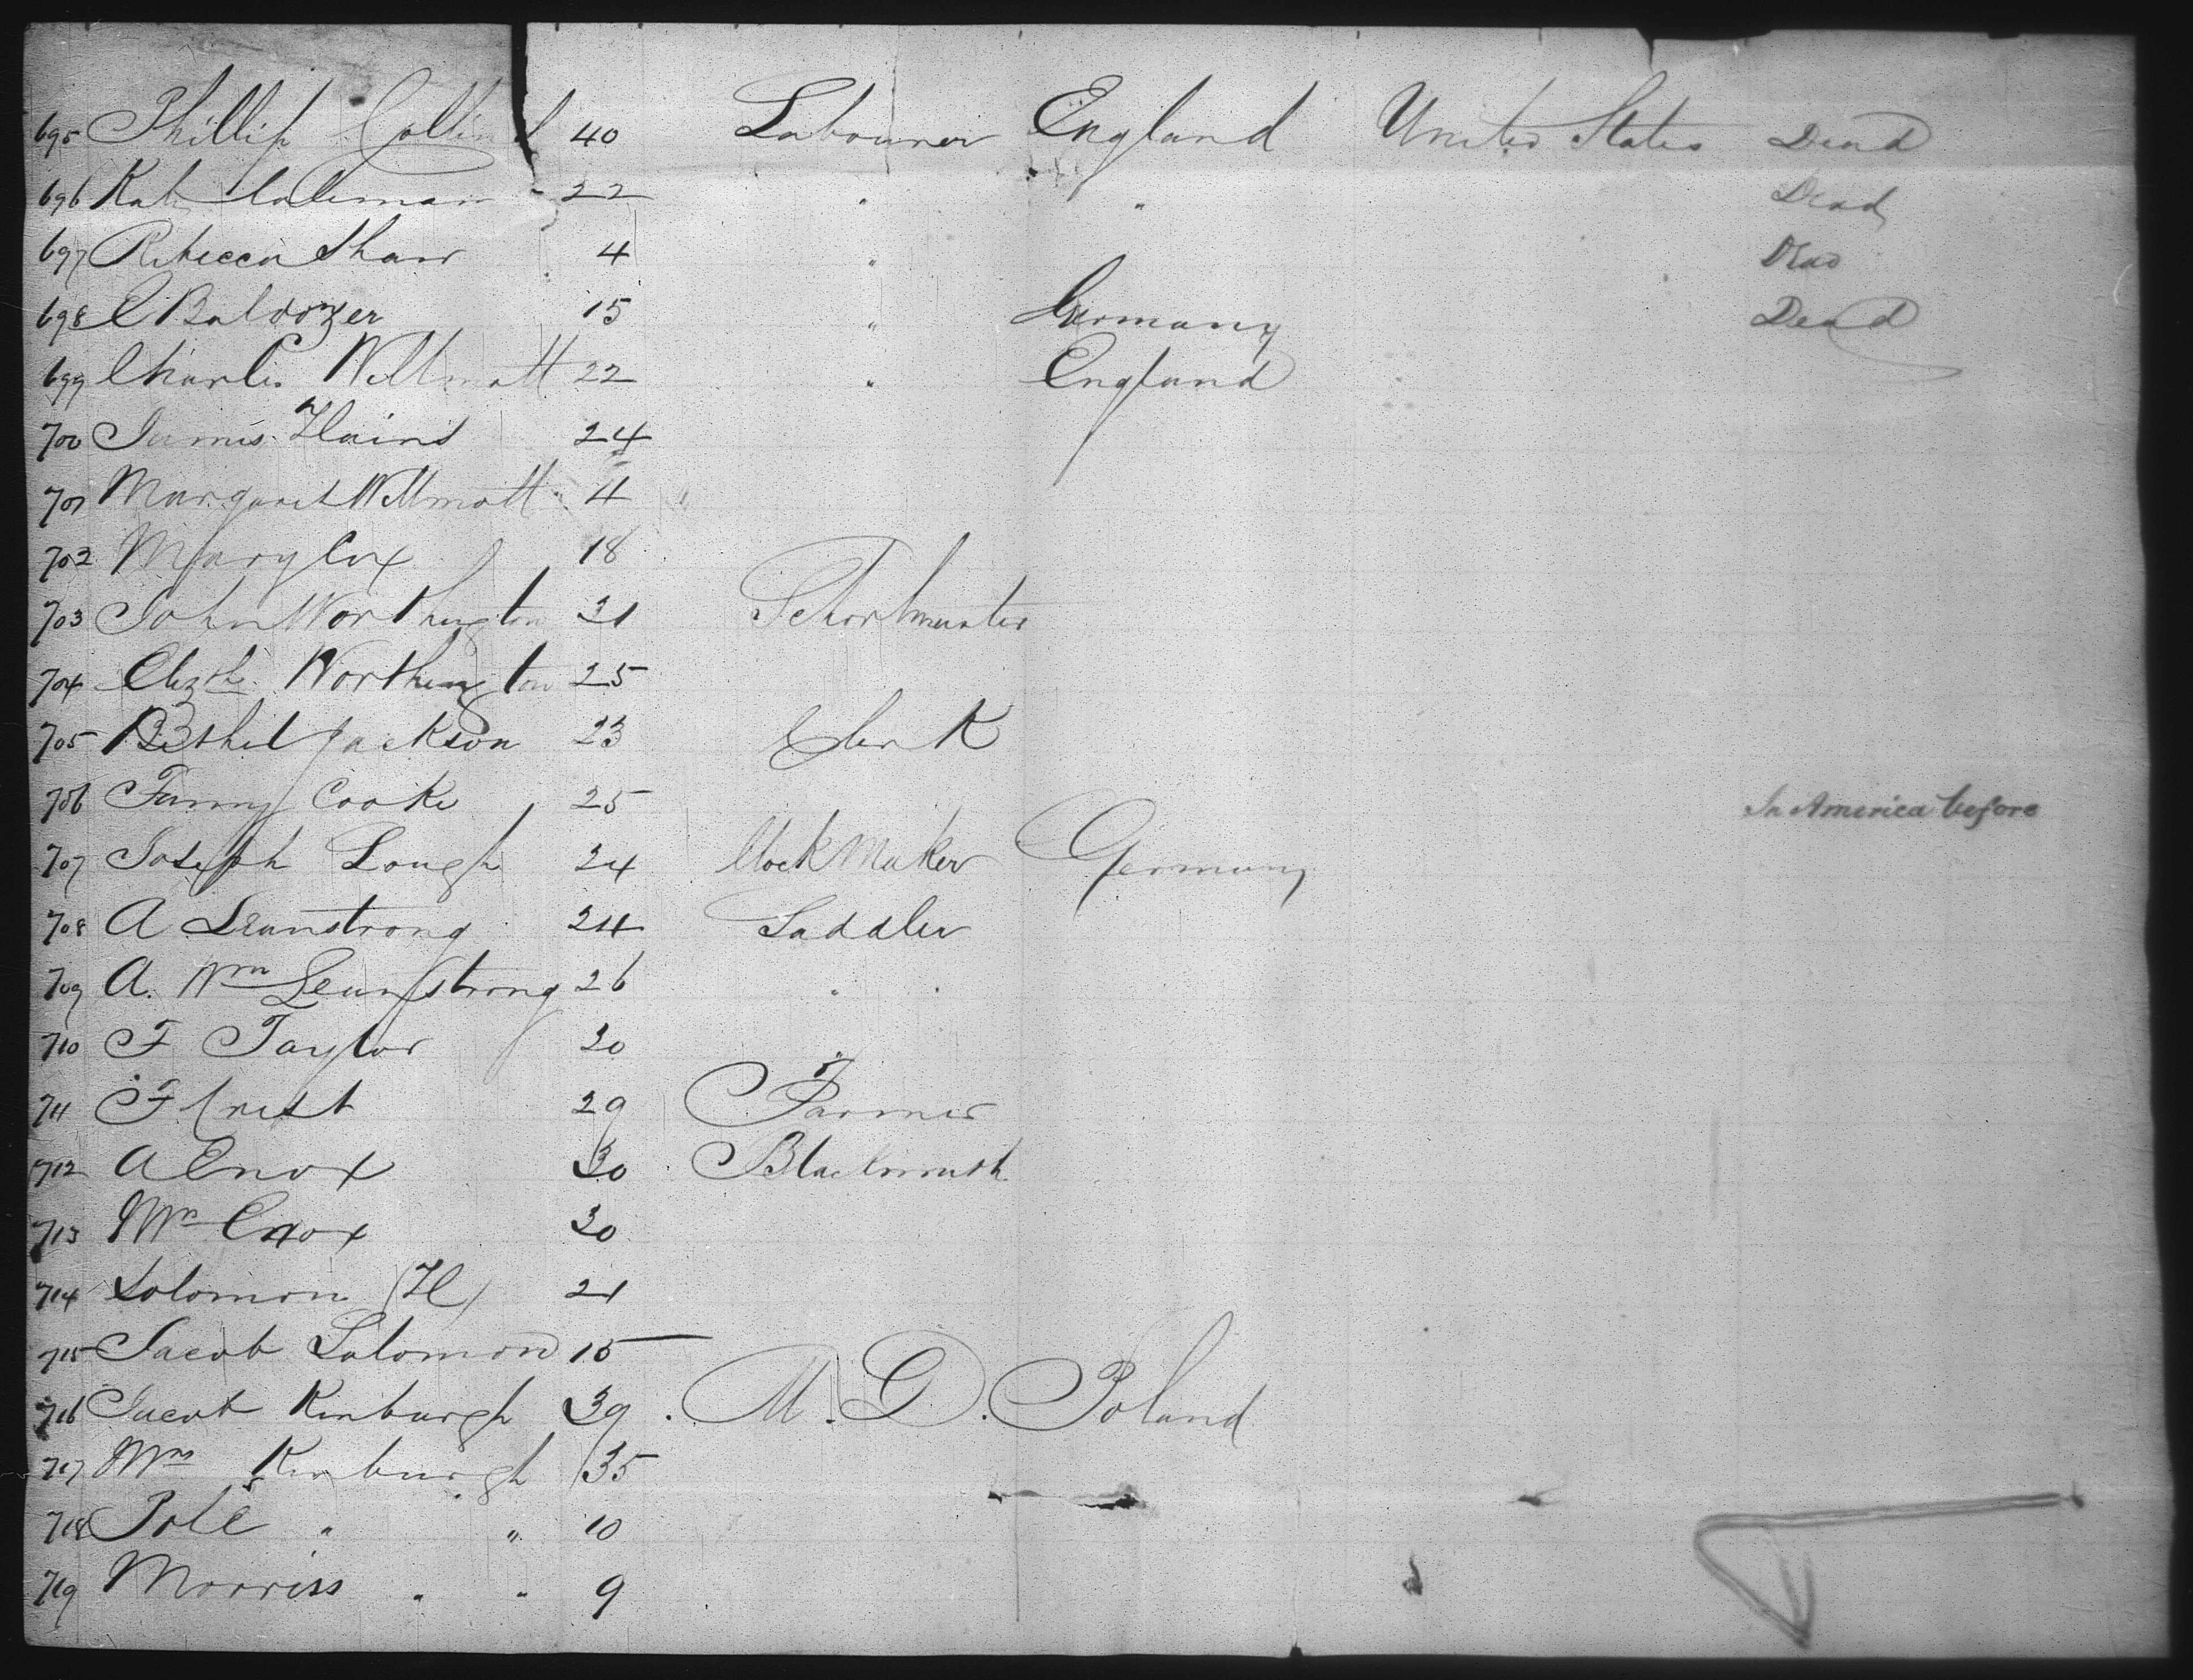 695 Phillip Collins 40 Labourer England United States Dead
696 Kate Coleman 22 " " Dead
697 Rebecca Shaw 4 " Dead
698 C Baldozer 15 " Germany Dead
699 Charles Willmott 22 " England
700 James Hains 24
701 Margaret Willmott 4 "
702 Mary Cox 18
703 John Worthington 31
704 Elizth Worthington 25
705 Bethel Jackson 23 Clerk
706 Fanny Cooke 25 In America before
707 Joseph Lough 24 Clock Maker Germany
708 A Leunstrong 24 Saddler
709 A. Wm Leunstrong 26 "
710 F Taylor 20 "
711 F Crist 29 Farmer
712 A Cnox 30 Blacksmith
713 Mrs Cnox 30
714 Solomon (H) 21
715 Jacob Solomon 15
716 Jacob Kinburgh 39 . M. D. Poland
717 Mrs Kinburgh 35
718 " " 10
719 Morriss " " 9